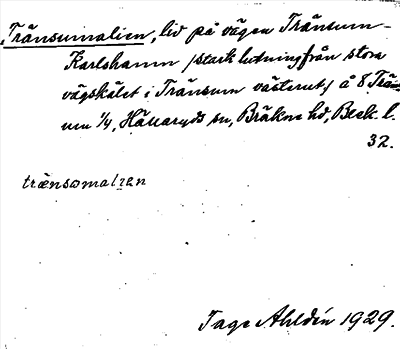 Tränsumalien, lid på vägen Tränsum-
Karlshamn /stark lutning från stora
vägskälet i Tränsum västerut/ å 8 Trän-
sum 1/4, Hällaryds sn, Bräkne hd, Beck. l.
32.
trænsomalien
Tage Ahldén 1929.